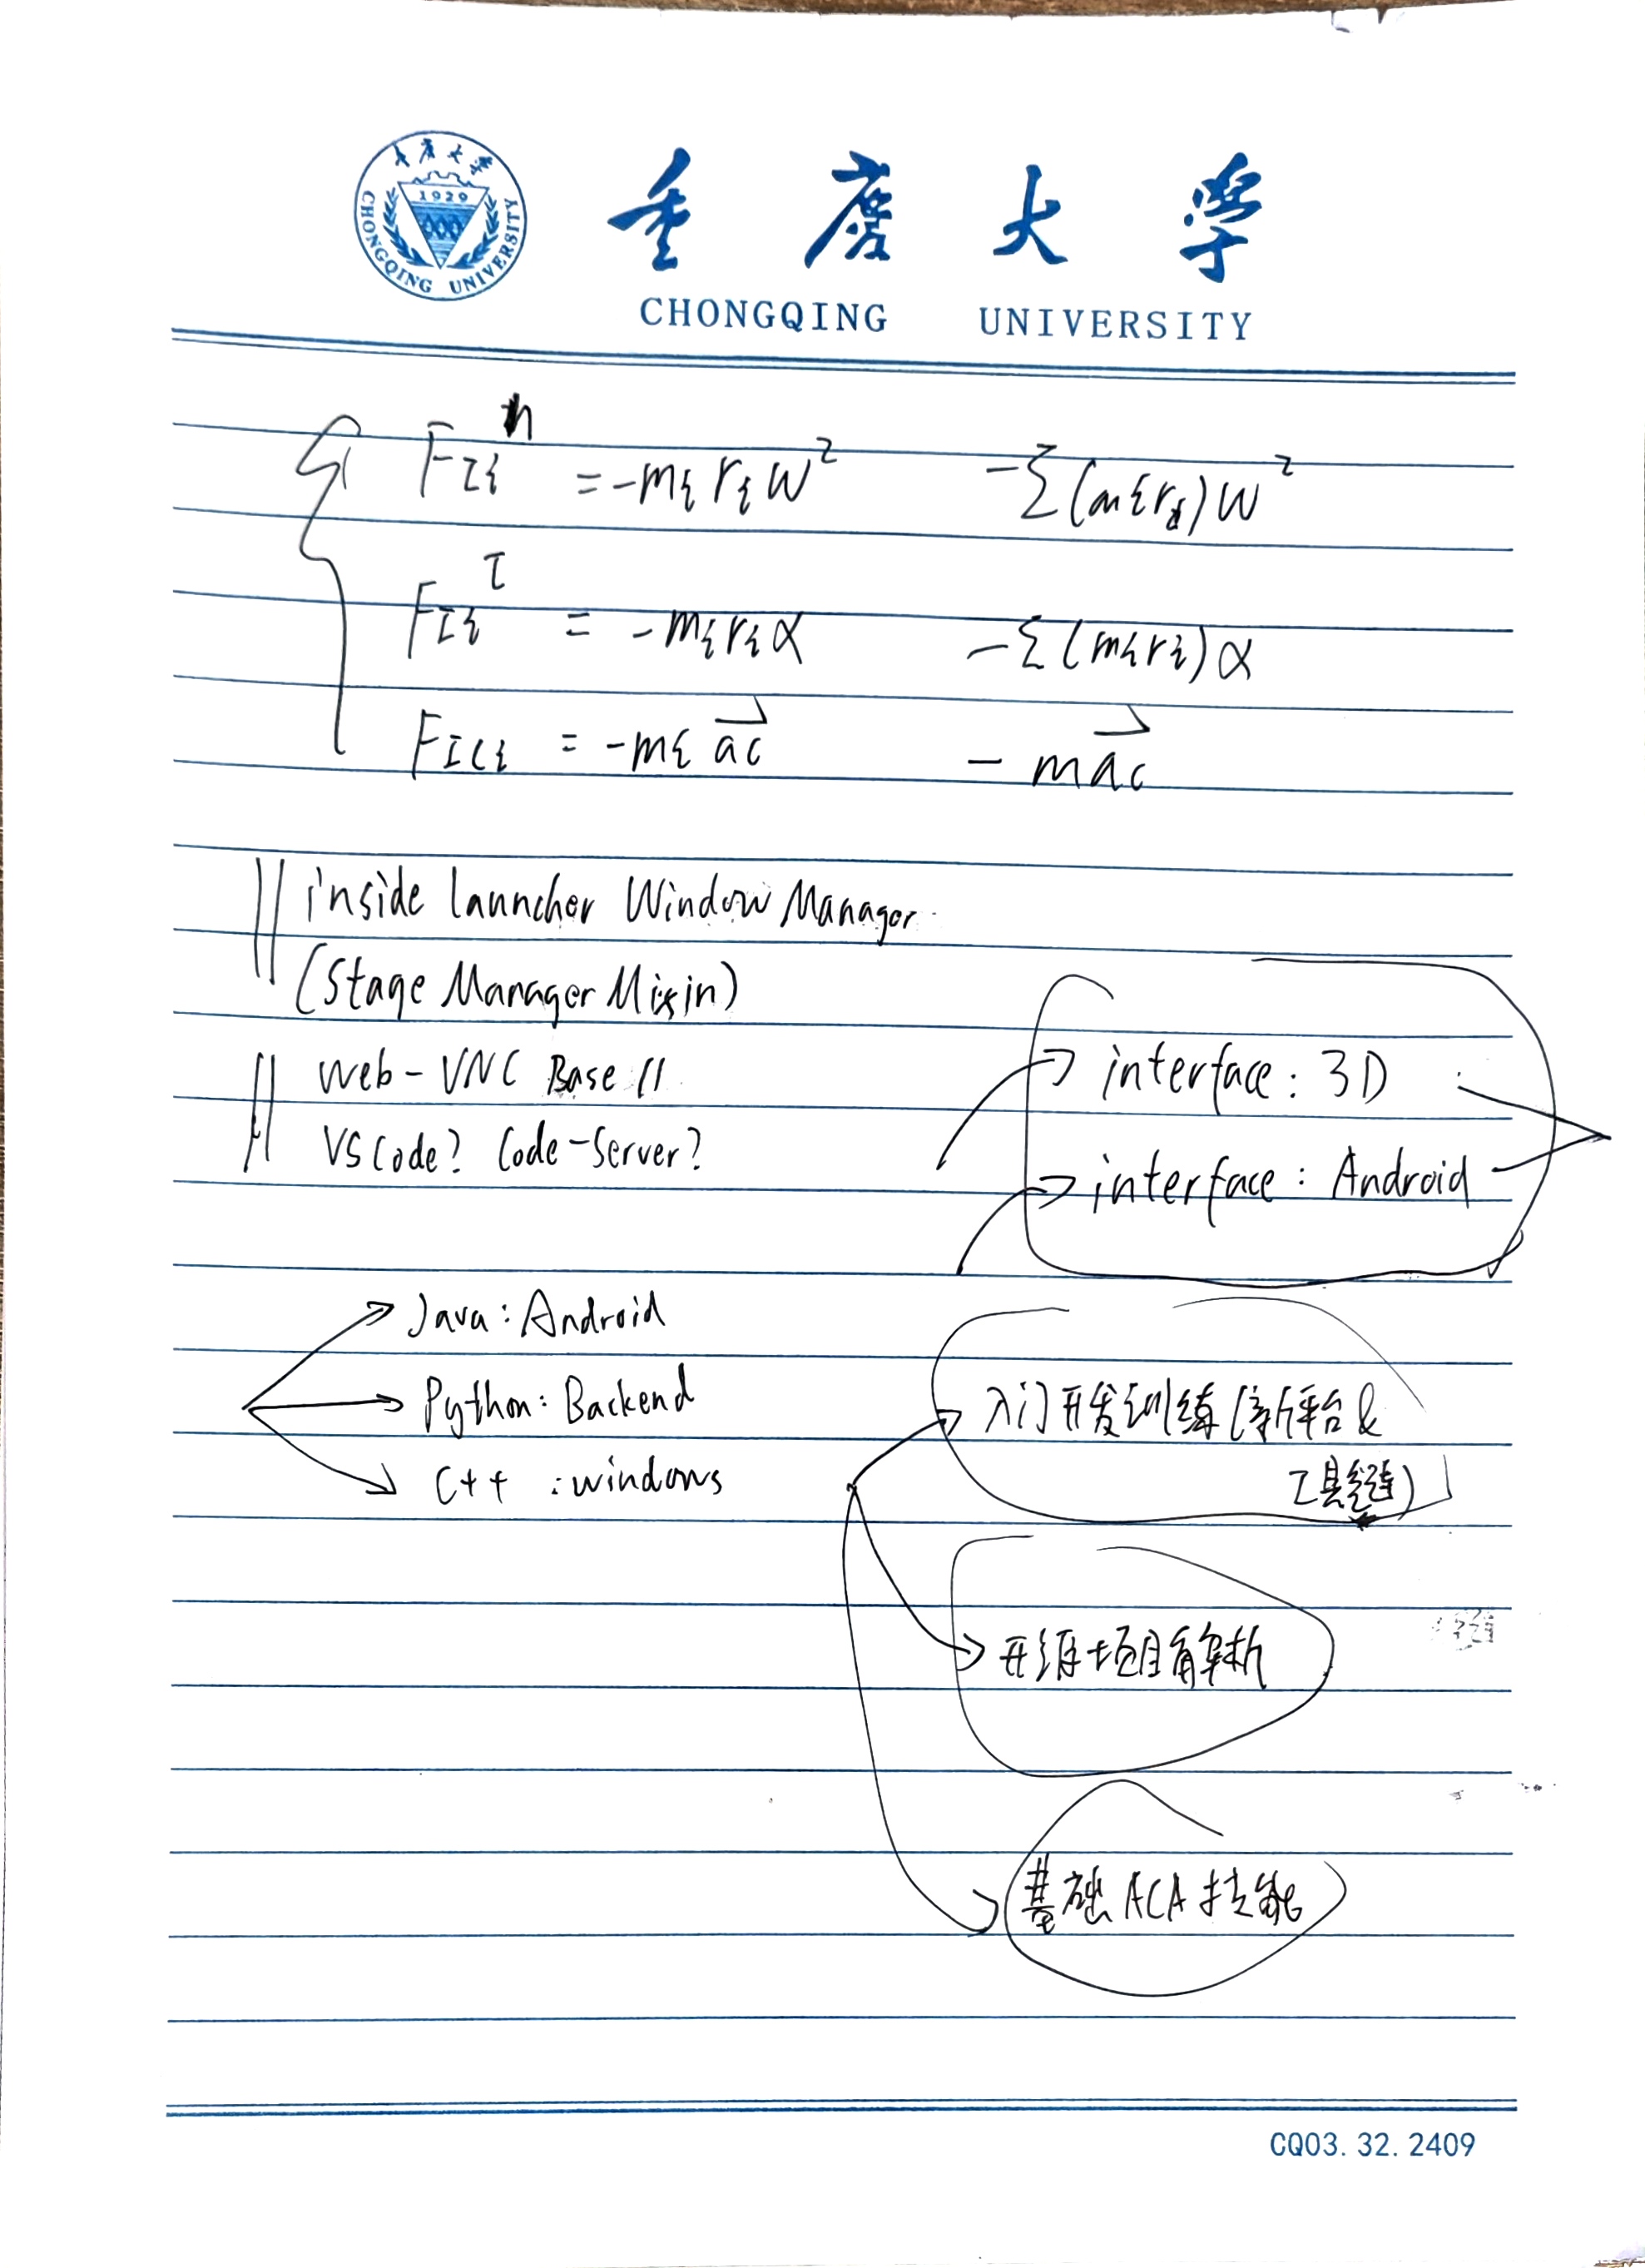 重庆大学
1929
CHONGQING UNIVERSITY
重庆大学
CHONGQING UNIVERSITY
F_{Ii}^n = -m_i r_i w² -Σ(m_i r_i)w²
F_{Ii}^τ = -m_i r_i α -Σ(m_i r_i)α
F_{ICi} = -m_i \vec{ac} - m\vec{ac}
inside launcher Window Manager
(Stage Manager Mixin)
Web-VNC Base //
VSCode? Code-Server?
interface: 3D
interface: Android
Java: Android
Python: Backend
C++ : windows
入门开发训练(新平台&
工具链)
开源项目解析
基础ACA技能
CQ03.32.2409